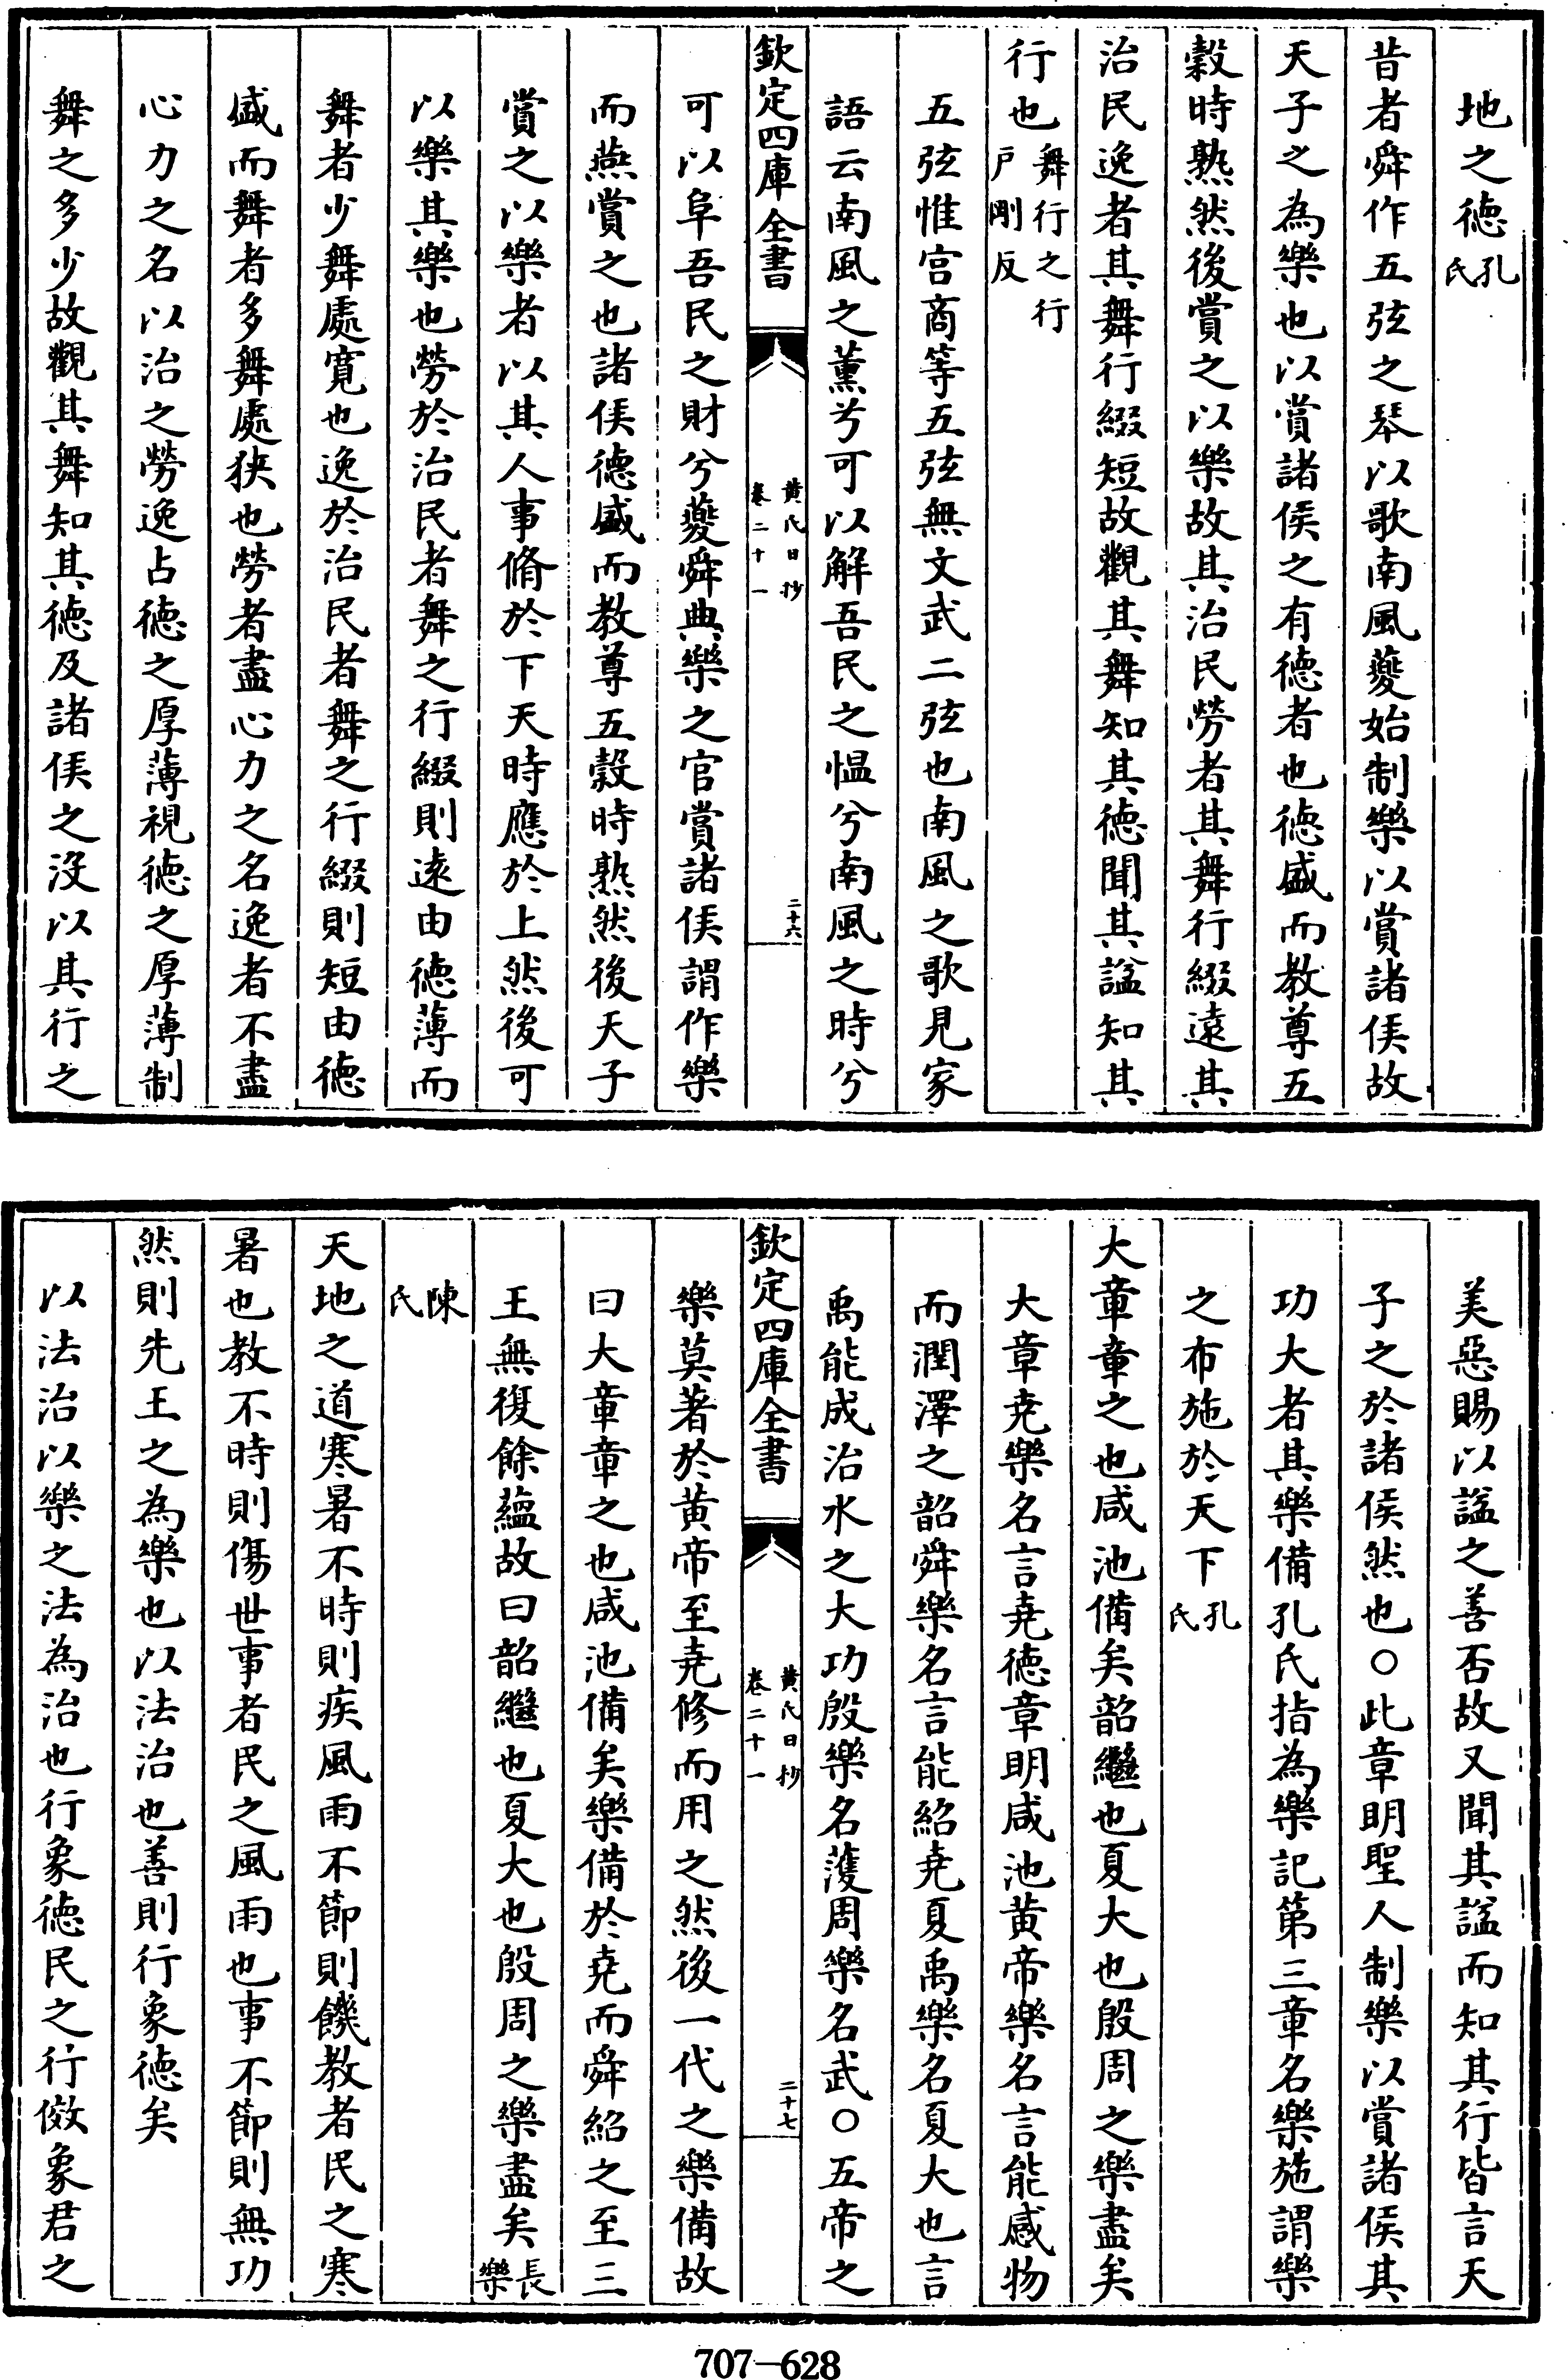 地之徳孔氏
昔者舜作五弦之琴以歌南風夔始制樂以賞諸侯故
天子之為樂也以賞諸侯之有徳者也徳盛而教尊五
穀時熟然後賞之以樂故其治民勞者其舞行綴遠其
治民逸者其舞行綴短故觀其舞知其徳聞其諡知其
行也舞行之行戸剛反
五弦惟宫商等五弦無文武二弦也南風之歌見家
語云南風之薰兮可以解吾民之愠兮南風之時兮
欽定四庫全書
黄氏日抄
卷二十一
二十六
可以阜吾民之財兮夔舜典樂之官賞諸侯謂作樂
而燕賞之也諸侯徳盛而教尊五穀時熟然後天子
賞之以樂者以其人事脩於下天時應於上然後可
以樂其樂也勞於治民者舞之行綴則逺由徳薄而
舞者少舞處寛也逸於治民者舞之行綴則短由徳
盛而舞者多舞處狹也勞者盡心力之名逸者不盡
心力之名以治之勞逸占徳之厚薄視徳之厚薄制
舞之多少故觀其舞知其徳及諸侯之沒以其行之
美惡賜以諡之善否故又聞其諡而知其行皆言天
子之於諸侯然也○此章明聖人制樂以賞諸侯其
功大者其樂備孔氏指為樂記第三章名樂施謂樂
之布施於天下孔氏
大章章之也咸池備矣韶繼也夏大也殷周之樂盡矣
大章尭樂名言尭徳章明咸池黄帝樂名言能感物
而潤澤之韶舜樂名言能紹尭夏禹樂名夏大也言
禹能成治水之大功殷樂名濩周樂名武○五帝之
欽定四庫全書
黄氏日抄
卷二十一
二十七
樂莫著於黄帝至尭修而用之然後一代之樂備故
曰大章章之也咸池備矣樂備於尭而舜紹之至三
王無復餘蘊故曰韶繼也夏大也殷周之樂盡矣長樂
陳氏
天地之道寒暑不時則疾風雨不節則饑教者民之寒
暑也教不時則傷世事者民之風雨也事不節則無功
然則先王之為樂也以法治也善則行象徳矣
以法治以樂之法為治也行象徳民之行倣象君之
707-628